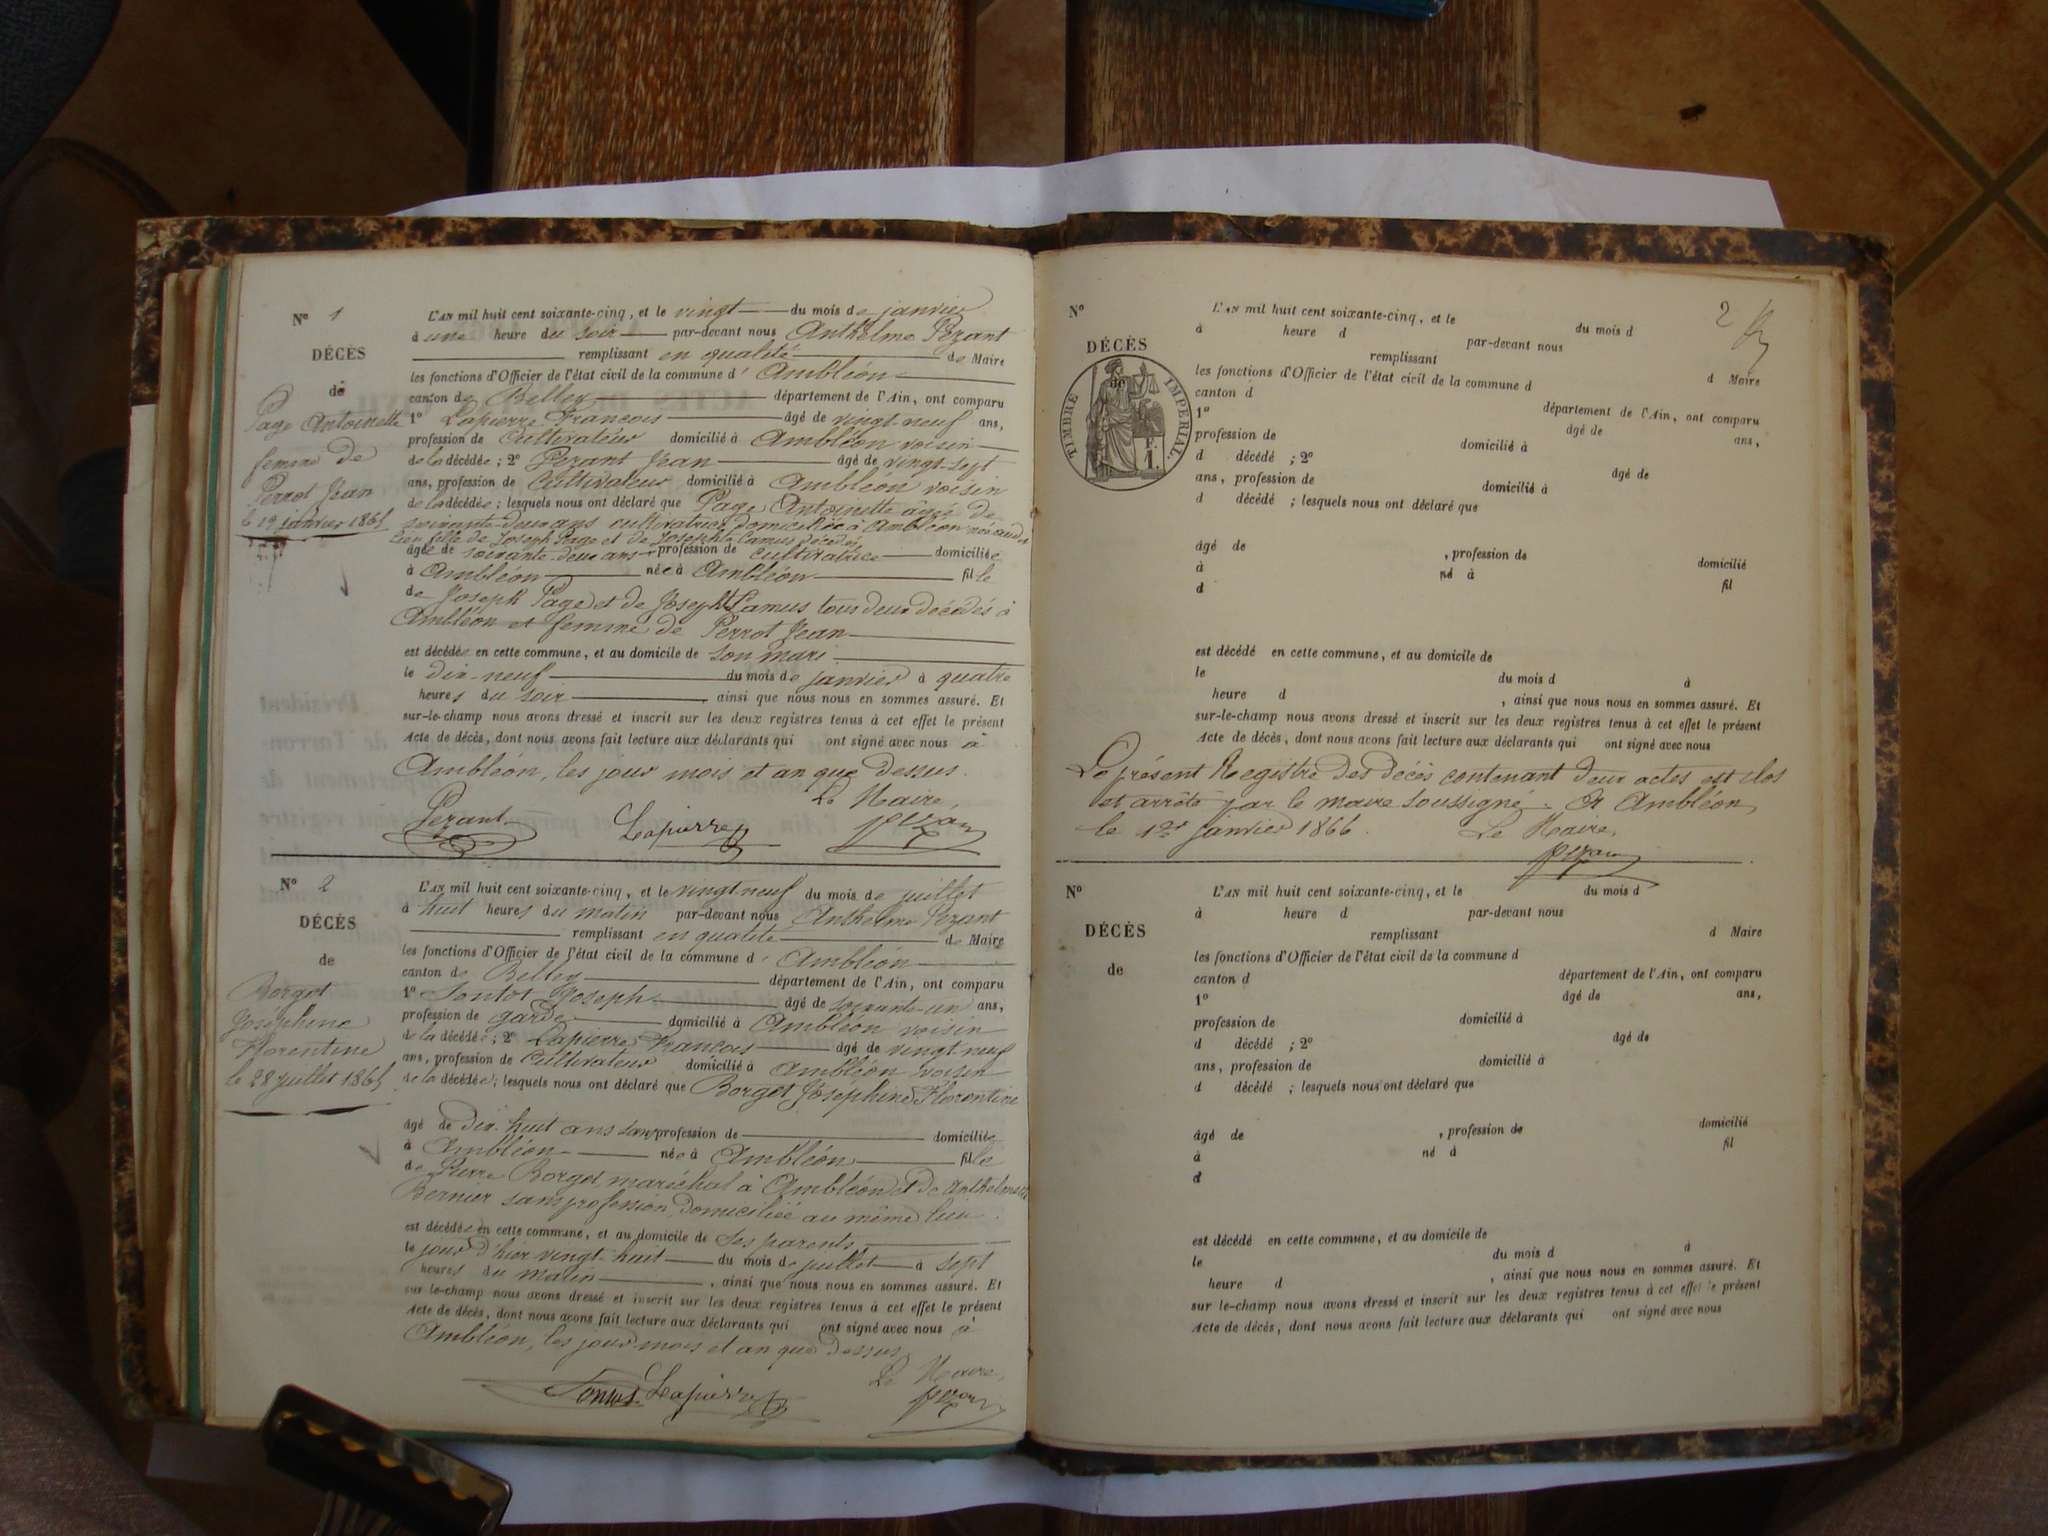 N° 1
DÉCÈS
de
Page Antoinette
femme de
Perrot Jean
le 19 janvier 1865
L'AN mil huit cent soixante-cinq, et le vingt du mois de janvier
à une heure du soir par-devant nous Anthelme Pezant
remplissant en qualité de Maire
les fonctions d'Officier de l'état civil de la commune d' Ambléon
canton de Belley département de l'Ain, ont comparu
1° Lapierre François âgé de vingt neuf ans,
profession de Cultivateur domicilié à Ambléon voisin
de la décédée ; 2° Pezant Jean âgé de vingt-sept
ans, profession de Cultivateur domicilié à Ambléon voisin
de la décédée ; lesquels nous ont déclaré que Page Antoinette âgée de
soixante-deux ans cultivatrice domiciliée à Ambléon née audit
lieu fille de Joseph Page et de Josephte Camus décédés
âgée de soixante-deux ans profession de cultivatrice domiciliée
à Ambléon née à Ambléon fille
de Joseph Page et de Joseph Camus tous deux décédés à
Ambléon et femme de Perrot Jean
est décédée en cette commune, et au domicile de son mari
le dix-neuf du mois de janvier à quatre
heures du soir , ainsi que nous nous en sommes assuré. Et
sur-le-champ nous avons dressé et inscrit sur les deux registres tenus à cet effet le présent
Acte de décès, dont nous avons fait lecture aux déclarants qui ont signé avec nous à
Ambléon, les jour mois et an que dessus.
Le Maire,
Pezant Lapierre Pezant
N° 2
DÉCÈS
de
Borget
Joséphine
Florentine
le 28 juillet 1865
L'AN mil huit cent soixante-cinq, et le vingt neuf du mois de juillet
à huit heures du matin par-devant nous Anthelme Pezant
remplissant en qualité de Maire
les fonctions d'Officier de l'état civil de la commune d' Ambléon
canton de Belley département de l'Ain, ont comparu
1° Joseph âgé de soixante-un ans,
profession de garde domicilié à Ambléon voisin
de la décédée ; 2° Lapierre François âgé de vingt neuf
ans, profession de Cultivateur domicilié à Ambléon voisin
de la décédée ; lesquels nous ont déclaré que Borget Joséphine Florentine
âgé de dix-huit ans sans profession de domiciliée
à Ambléon née à Ambléon fille
de Pierre Borget maréchal à Ambléon et de Anthelmette
Bernier sans profession, domiciliée au même lieu.
est décédée en cette commune, et au domicile de ses parents
le jour d'hier vingt-huit du mois de juillet à sept
heures du matin , ainsi que nous nous en sommes assuré. Et
sur le-champ nous avons dressé et inscrit sur les deux registres tenus à cet effet le présent
Acte de décès, dont nous avons fait lecture aux déclarants qui ont signé avec nous à
Ambléon, les jour mois et an que dessus
Le Maire,
Lapierre Pezant
2
N°
DÉCÈS
de
TIMBRE IMPERIAL.
L'AN mil huit cent soixante-cinq, et le du mois d
à heure d par-devant nous
remplissant d Maire
les fonctions d'Officier de l'état civil de la commune d
canton d département de l'Ain, ont comparu
1° âgé de ans,
profession de domicilié à
d décédé ; 2° âgé de
ans, profession de domicilié à
d décédé ; lesquels nous ont déclaré que
âgé de , profession de domicilié
à né à fil
d
est décédé en cette commune, et au domicile de
le du mois d à
heure d , ainsi que nous nous en sommes assuré. Et
sur-le-champ nous avons dressé et inscrit sur les deux registres tenus à cet effet le présent
Acte de décès, dont nous avons fait lecture aux déclarants qui ont signé avec nous
Le présent Registre des décès contenant deux actes est clos
et arrêté par le maire soussigné. A Ambléon,
le 1er janvier 1866. Le Maire,
Pezant
N°
DÉCÈS
de
L'AN mil huit cent soixante-cinq, et le du mois d
à heure d par-devant nous
remplissant d Maire
les fonctions d'Officier de l'état civil de la commune d
canton d département de l'Ain, ont comparu
1° âgé de ans,
profession de domicilié à
d décédé ; 2° âgé de
ans, profession de domicilié à
d décédé ; lesquels nous ont déclaré que
âgé de , profession de domicilié
à né à fil
d
est décédé en cette commune, et au domicile de
le du mois d à
heure d , ainsi que nous nous en sommes assuré. Et
sur le-champ nous avons dressé et inscrit sur les deux registres tenus à cet effet le présent
Acte de décès, dont nous avons fait lecture aux déclarants qui ont signé avec nous